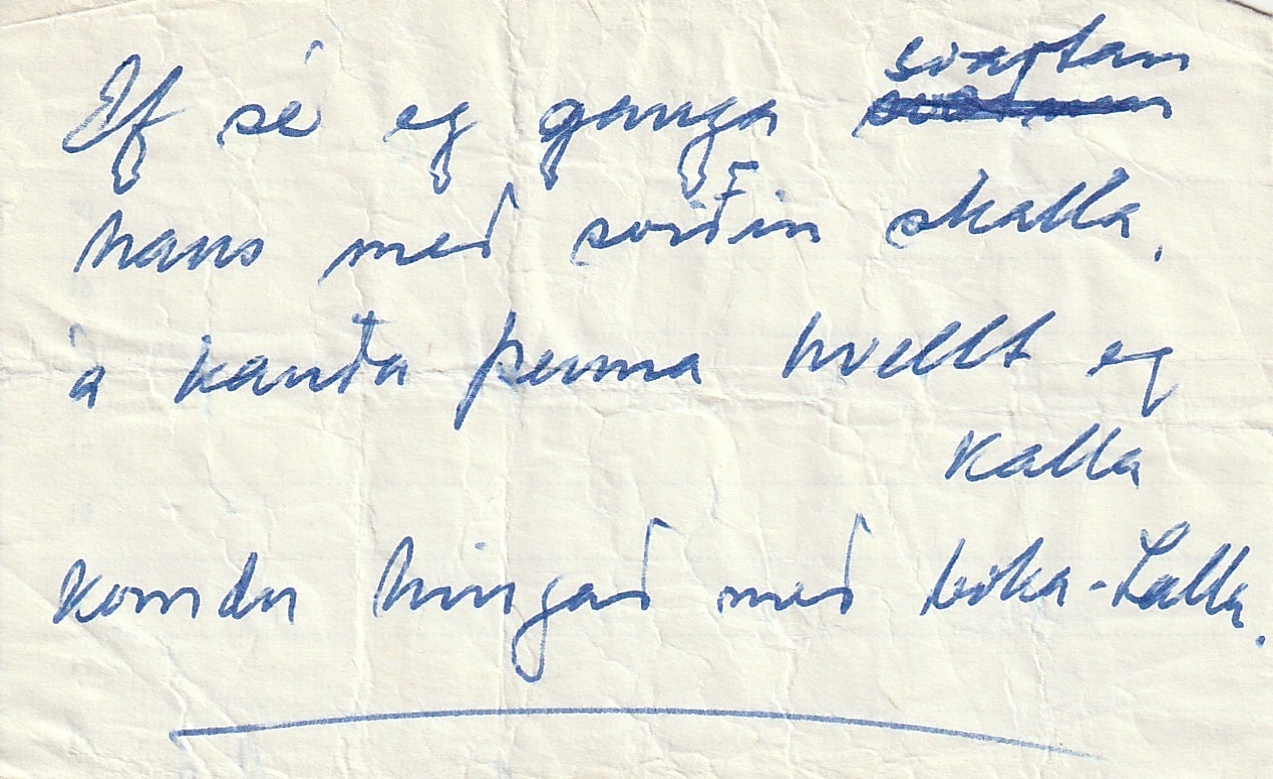 Ef sé eg ganga svartan
haus með sviðin skalla,
á kauða þenna hvellt eg
kalla
komdu hingað með bóka-Lalla.